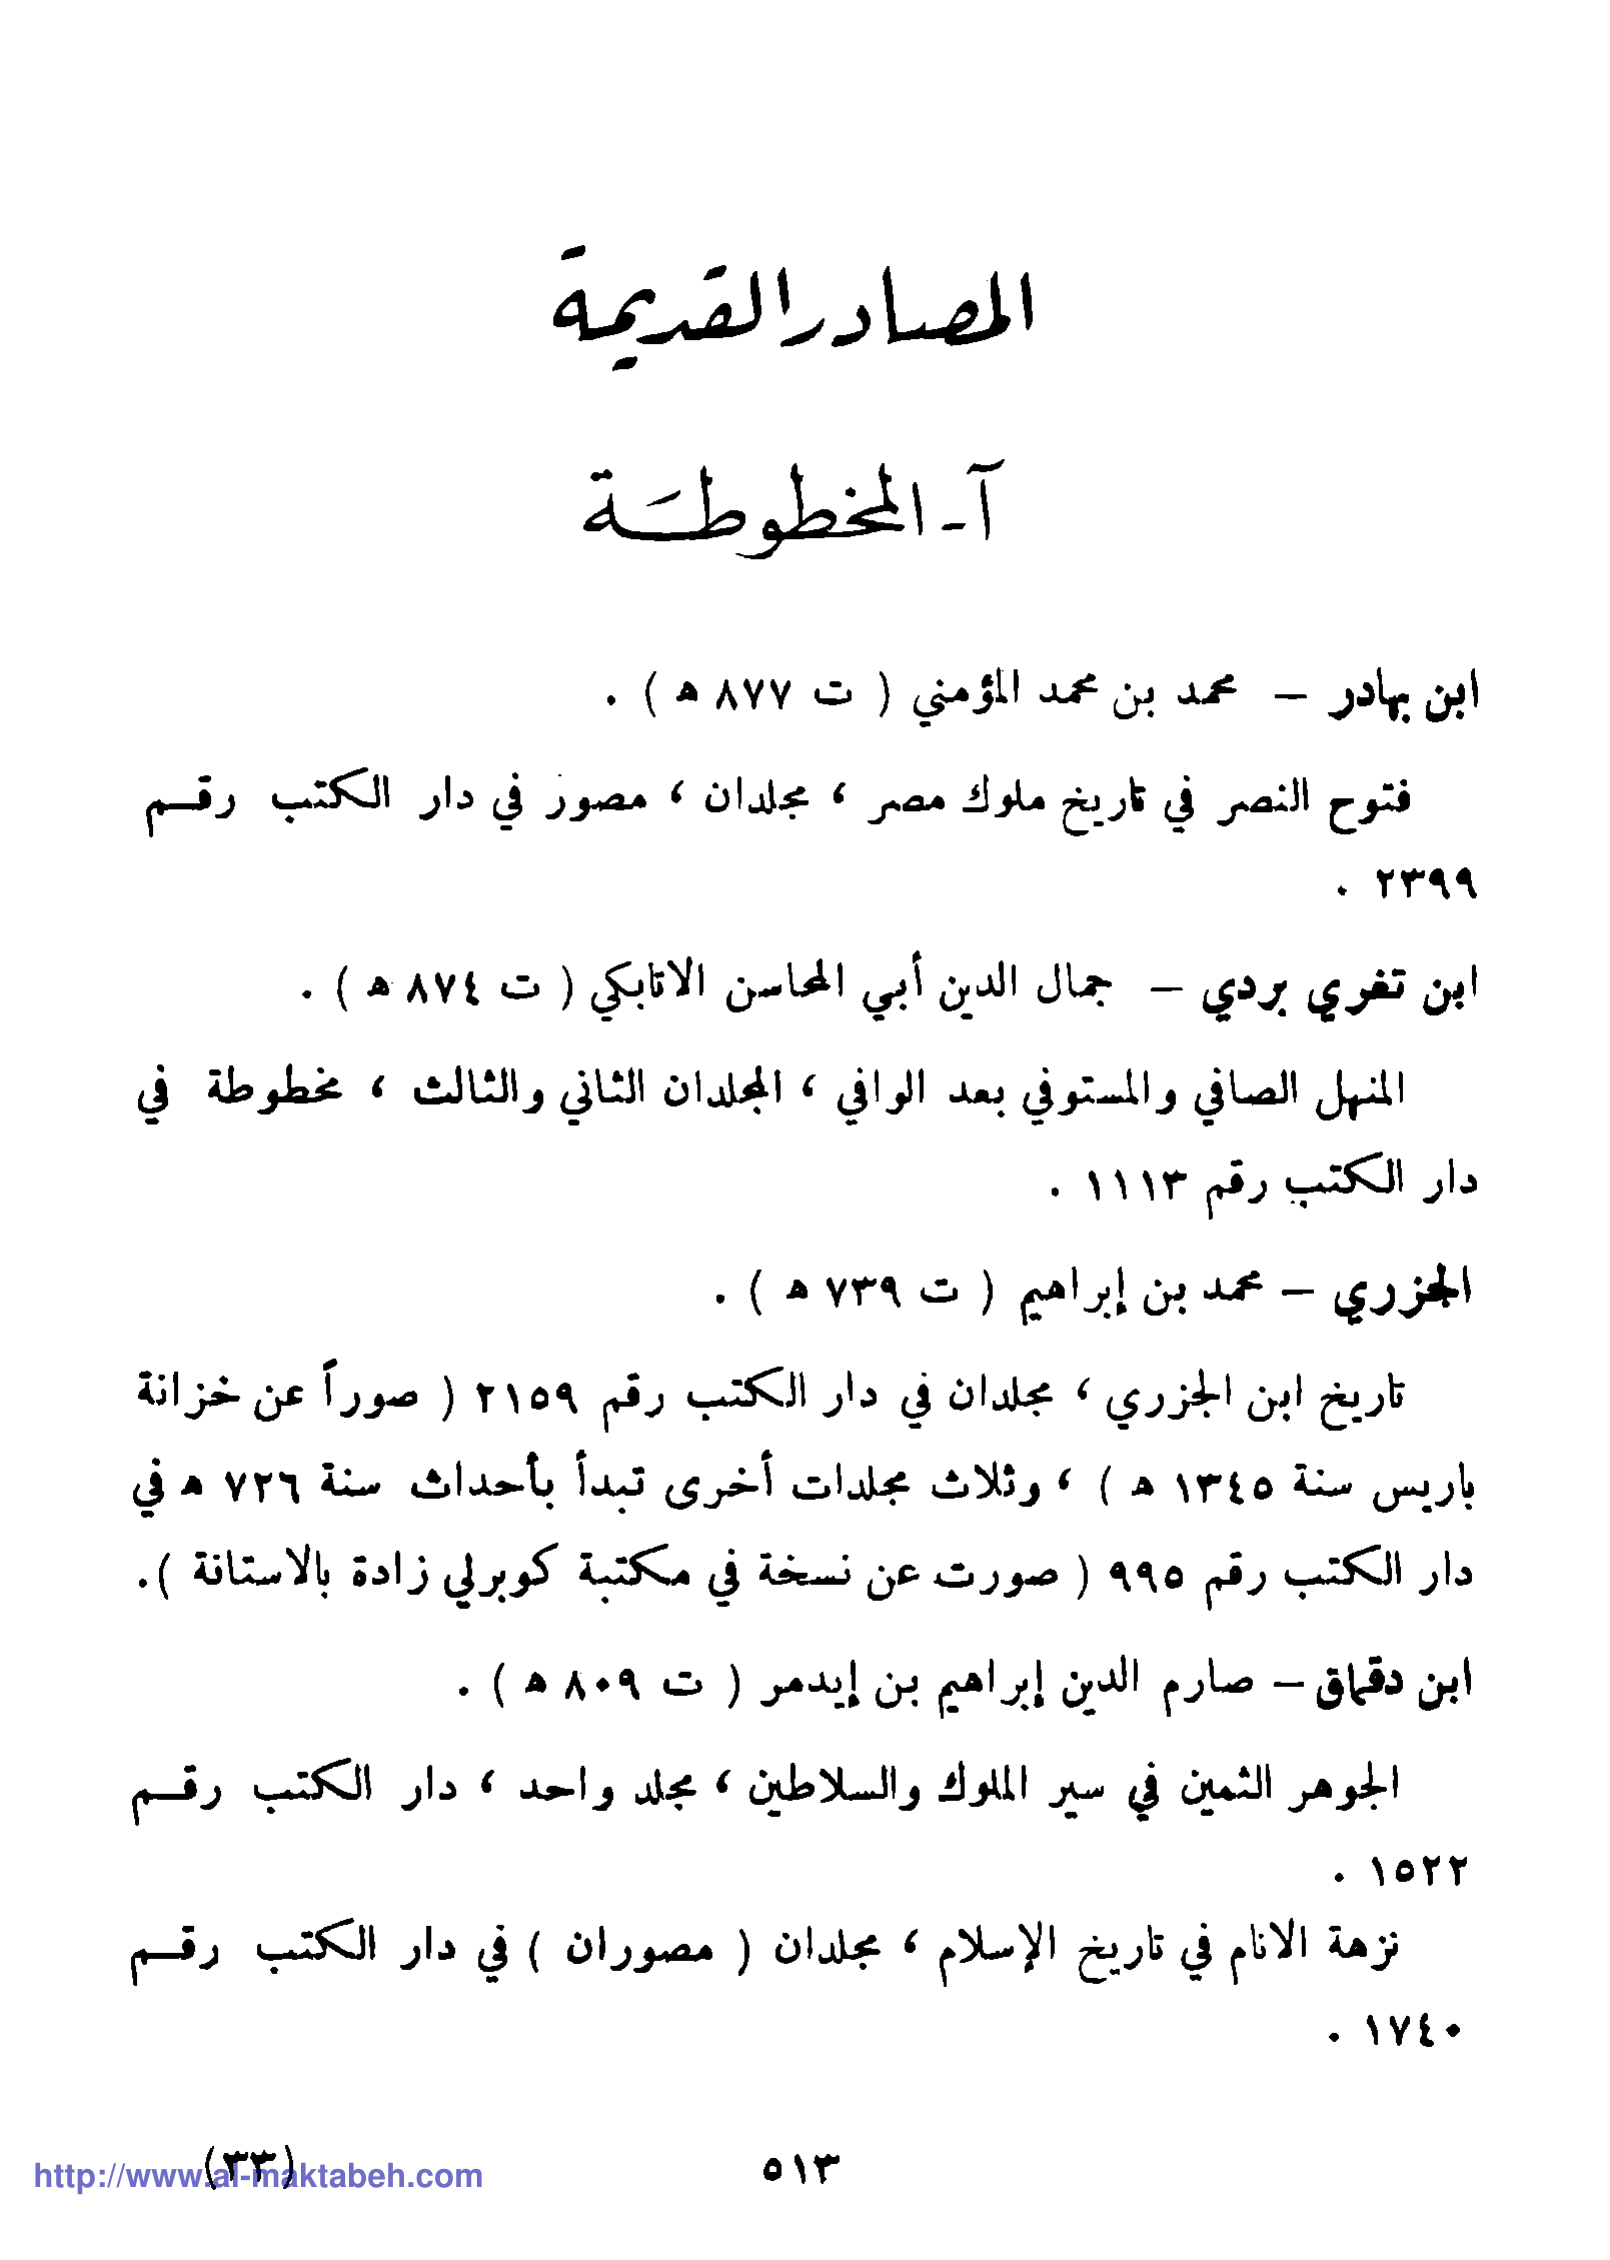 المصادر القديمة
آ - المخطوطة
ابن بهادر – محمد بن محمد المؤمني ( ت ٨٧٧ ه ) .
فتوح النصر في تاريخ ملوك مصر ، مجلدان ، مصور في دار الكتب رقم
٢٣٩٩ .
ابن تغري بردي – جمال الدين أبي المحاسن الاتابكي ( ت ٨٧٤ ه ) .
المنهل الصافي والمستوفي بعد الوافي ، المجلدان الثاني والثالث ، مخطوطة في
دار الكتب رقم ١١١٣ .
الجزري – محمد بن إبراهيم ( ت ٧٣٩ ه ) .
تاريخ ابن الجزري ، مجلدان في دار الكتب رقم ٢١٥٩ ( صوراً عن خزانة
باريس سنة ١٣٤٥ ه ) ، وثلاث مجلدات أخرى تبدأ بأحداث سنة ٧٢٦ ه في
دار الكتب رقم ٩٩٥ ( صورت عن نسخة في مكتبة كوبرلي زادة بالاستانة ).
ابن دقماق – صارم الدين إبراهيم بن إيدمر ( ت ٨٠٩ ه ) .
الجوهر الثمين في سير الملوك والسلاطين ، مجلد واحد ، دار الكتب رقم
١٥٢٢ .
نزهة الانام في تاريخ الإسلام ، مجلدان ( مصوران ) في دار الكتب رقم
١٧٤٠ .
٥١٣
(٣٣)
http://www.al-maktabeh.com